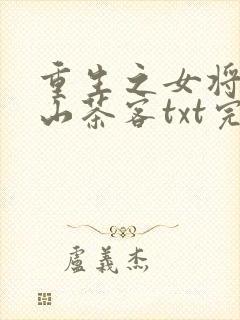 重生之女将
山茶客txt完
卢义杰